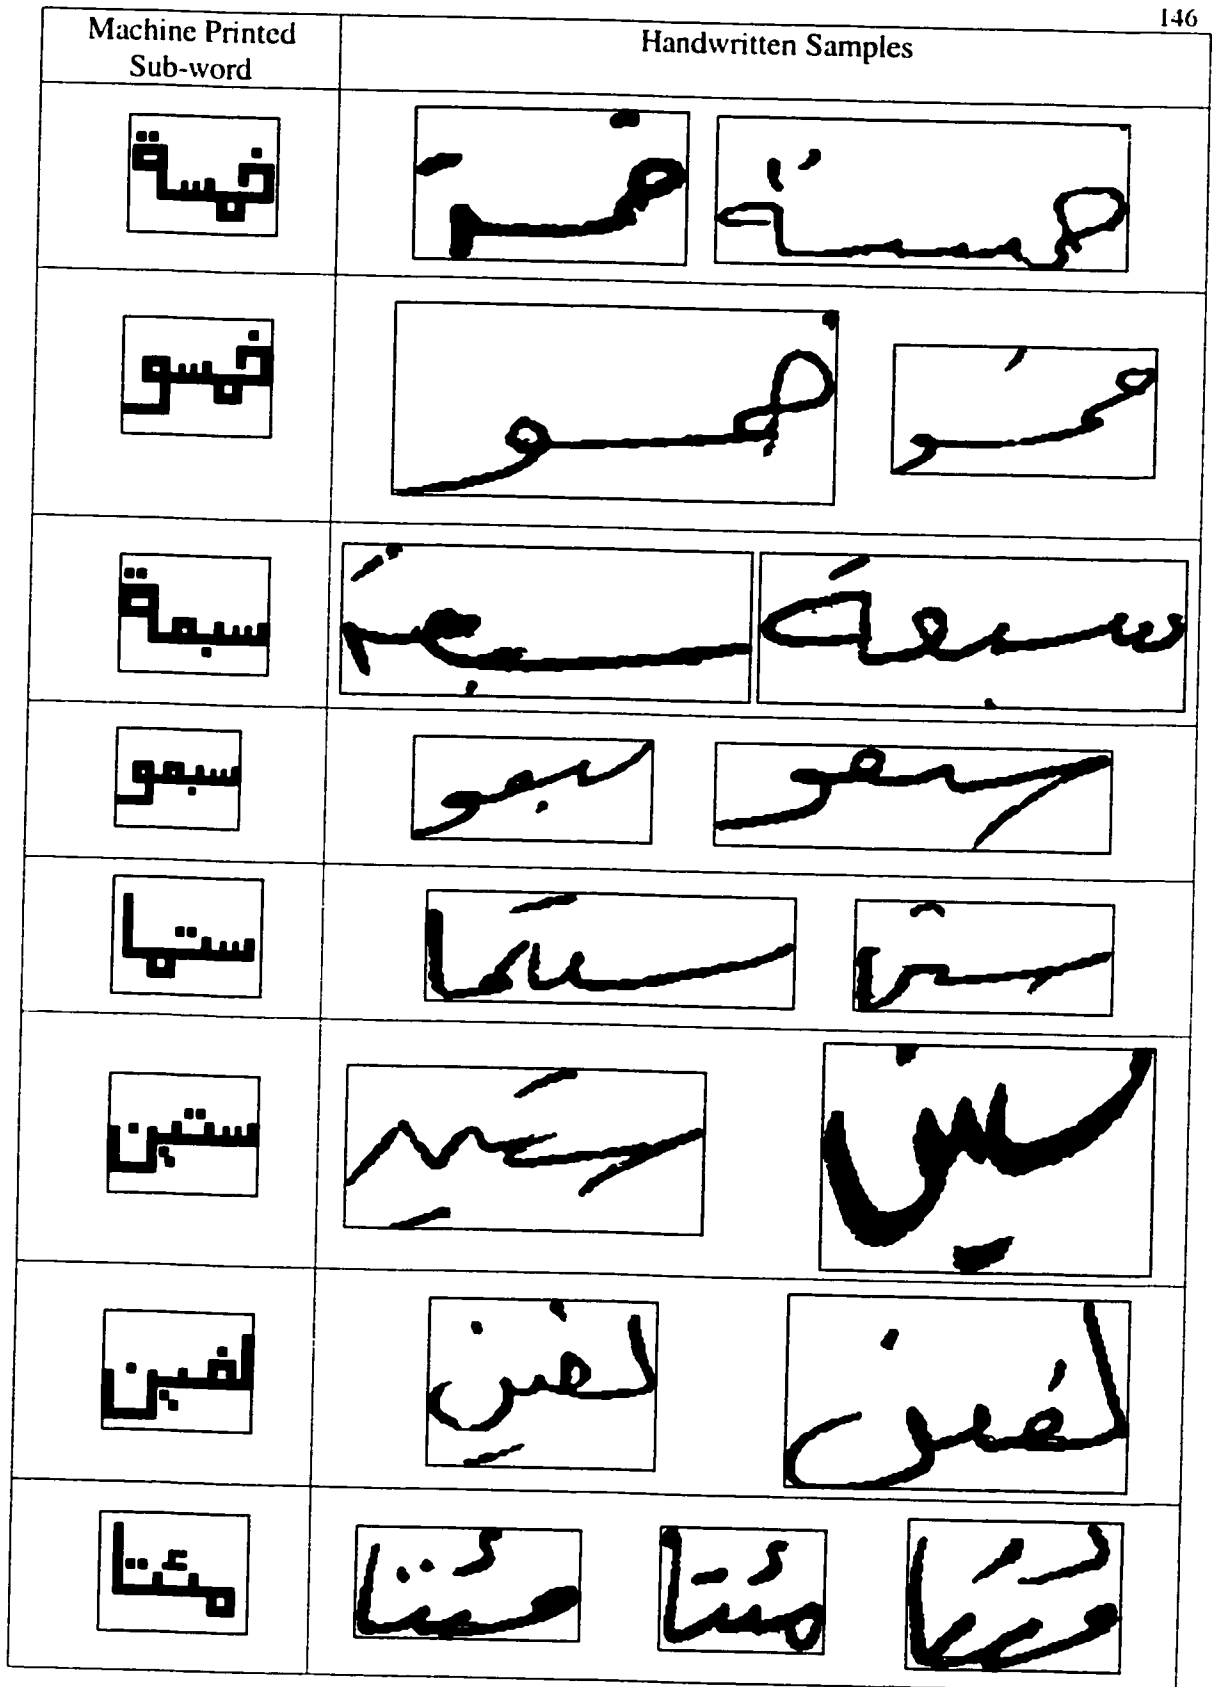 146
Machine Printed Sub-word Handwritten Samples
خمسة خمسة خمسة
خمسو خمسو خمسو
سبعة سبعة سبعة
سبعو سبعو سبعو
ستما ستما ستما
ستين ستين ستين
لفين لفين لفين
مئتا مئتا مئتا مئتا